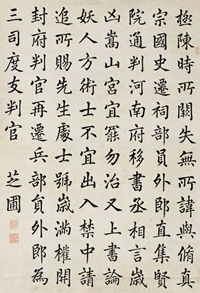 極陳時所闕失無所諱與脩真
宗國史遷祠部員外郎直集賢
院通判河南府移書丞相言歲
凶嵩山宮宜罷勿治又上書論
妖人方術士不宜出入禁中請
追所賜先生處士號歲滿權開
封府判官再遷兵部員外郎為
三司度支判官 芝圃